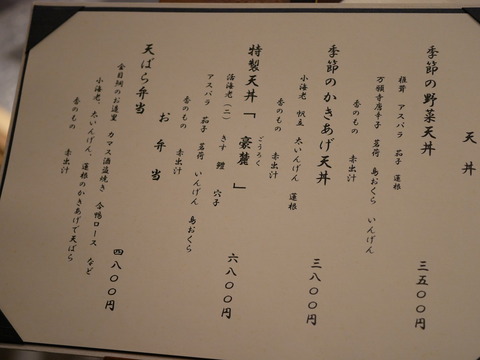 天丼
季節の野菜天丼 三五〇〇円
椎茸 アスパラ 茄子 蓮根
万願寺唐辛子 茗荷 島おくら いんげん
香のもの 赤出汁
季節のかきあげ天丼 三八〇〇円
小海老 帆立 太いんげん 蓮根
香のもの 赤出汁
特製天丼「豪麓」 六八〇〇円
ごうろく
活海老(二) きす 鱧 穴子
アスパラ 茄子 茗荷 いんげん 島おくら
香のもの 赤出汁
お弁当
天ばら弁当 四八〇〇円
金目鯛のお造里 カマス酒盗焼き 合鴨ロース など
小海老、太いんげん、蓮根のかきあげで天ばら
香のもの 赤出汁